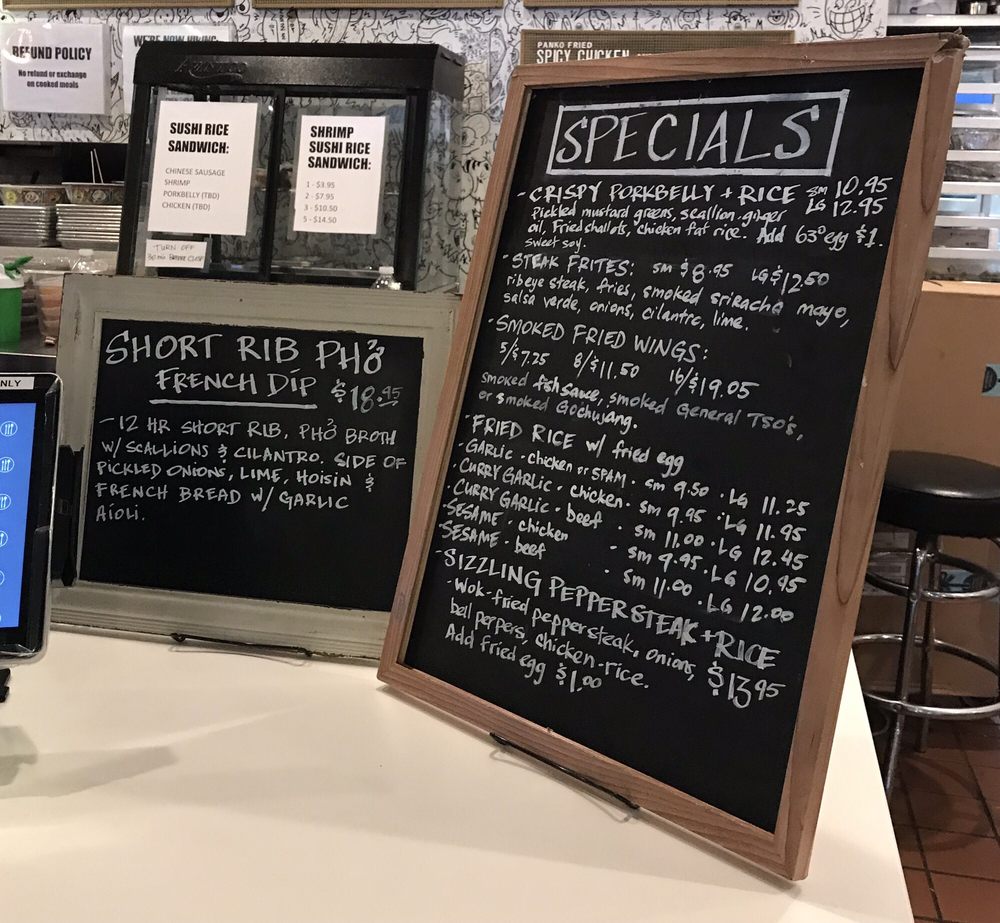 REFUND POLICY
No refund or exchange
on cooked meals
WE'RE NOW HIRING
PANKO FRIED
SPICY CHICKEN
SUSHI RICE
SANDWICH:
CHINESE SAUSAGE
SHRIMP
PORKBELLY (TBD)
CHICKEN (TBD)
SHRIMP
SUSHI RICE
SANDWICH:
1 - $3.95
2 - $7.95
3 - $10.50
5 - $14.50
TURN OFF
ONLY
SHORT RIB PHỞ
FRENCH DIP $18.45
- 12 HR SHORT RIB, PHỞ BROTH
W/ SCALLIONS & CILANTRO. SIDE OF
PICKLED ONIONS, LIME, HOISIN &
FRENCH BREAD W/ GARLIC
AIOLI.
SPECIALS
- CRISPY PORKBELLY + RICE SM 10.95
LG 12.95
Pickled mustard greens, scallion ginger
oil, Fried shallots, chicken fat rice. Add 63° egg $1.
sweet soy.
- STEAK FRITES: SM $8.95 LG $12.50
ribeye steak, fries, smoked sriracha mayo,
salsa verde, onions, cilantro, lime.
- SMOKED FRIED WINGS:
5/$7.25 8/$11.50 16/$19.05
smoked fish sauce, smoked General Tso's,
or smoked Gochujang.
- FRIED RICE w/ fried egg
· GARLIC - chicken or SPAM · Sm 9.50 · LG 11.25
· CURRY GARLIC · chicken · Sm 9.95 · LG 11.95
· CURRY GARLIC · beef · Sm 11.00 · LG 12.45
· SESAME · chicken · Sm 9.95 · LG 10.95
· SESAME · beef · Sm 11.00 · LG 12.00
- SIZZLING PEPPERSTEAK + RICE
- Wok-fried peppersteak, onions,
bell peppers, chicken-rice. $13.95
Add fried egg $1.00